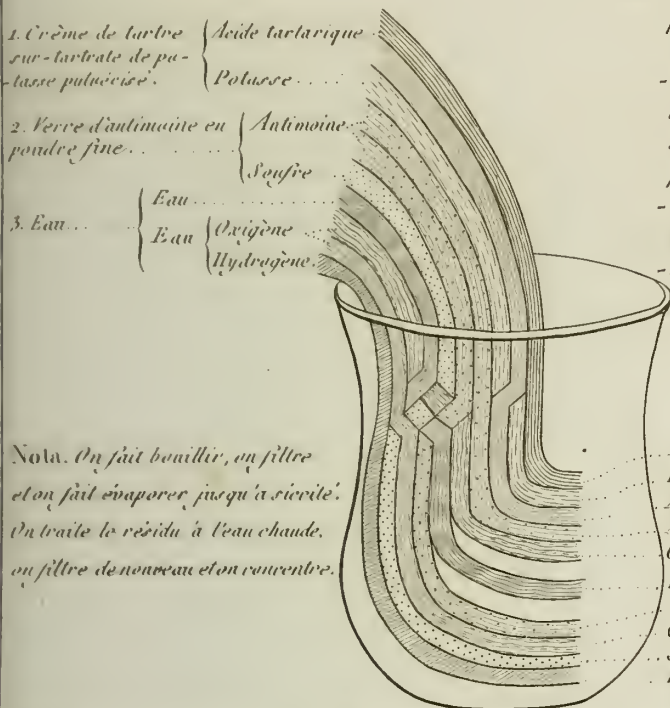 1. Crême de tartre
sur-tartrate de po-
-tasse pulvérisé.
Acide tartarique
Potasse
2. Verre d'antimoine en
poudre fine
Antimoine
Soufre
3. Eau
Eau
Eau
Oxigène
Hydrogène.
Nota. On fait bouillir, on filtre
et on fait évaporer jusqu'à siccité.
On traite le résidu à l'eau chaude.
on filtre de nouveau et on concentre.